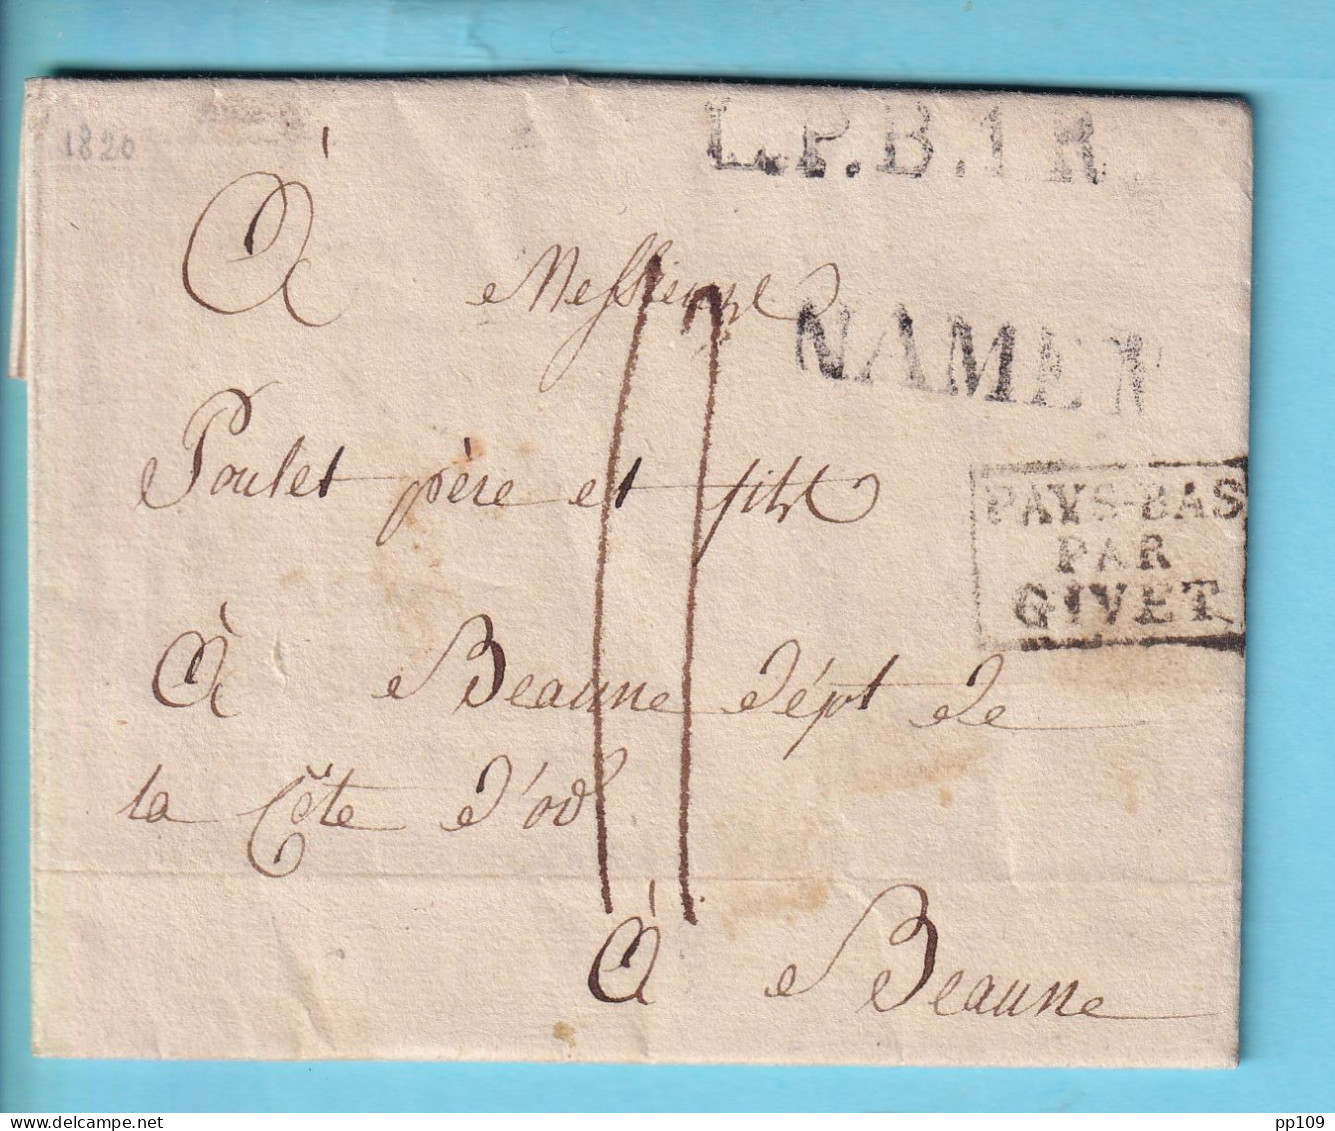 1820
L.P.B.1.R.
À Messieurs
NAMEN
Poulet père et fils
PAYS-BAS
PAR
GIVET
À Beaune dépt de
la Côte d'or
À Beaune
11
pp109
delcampe.net